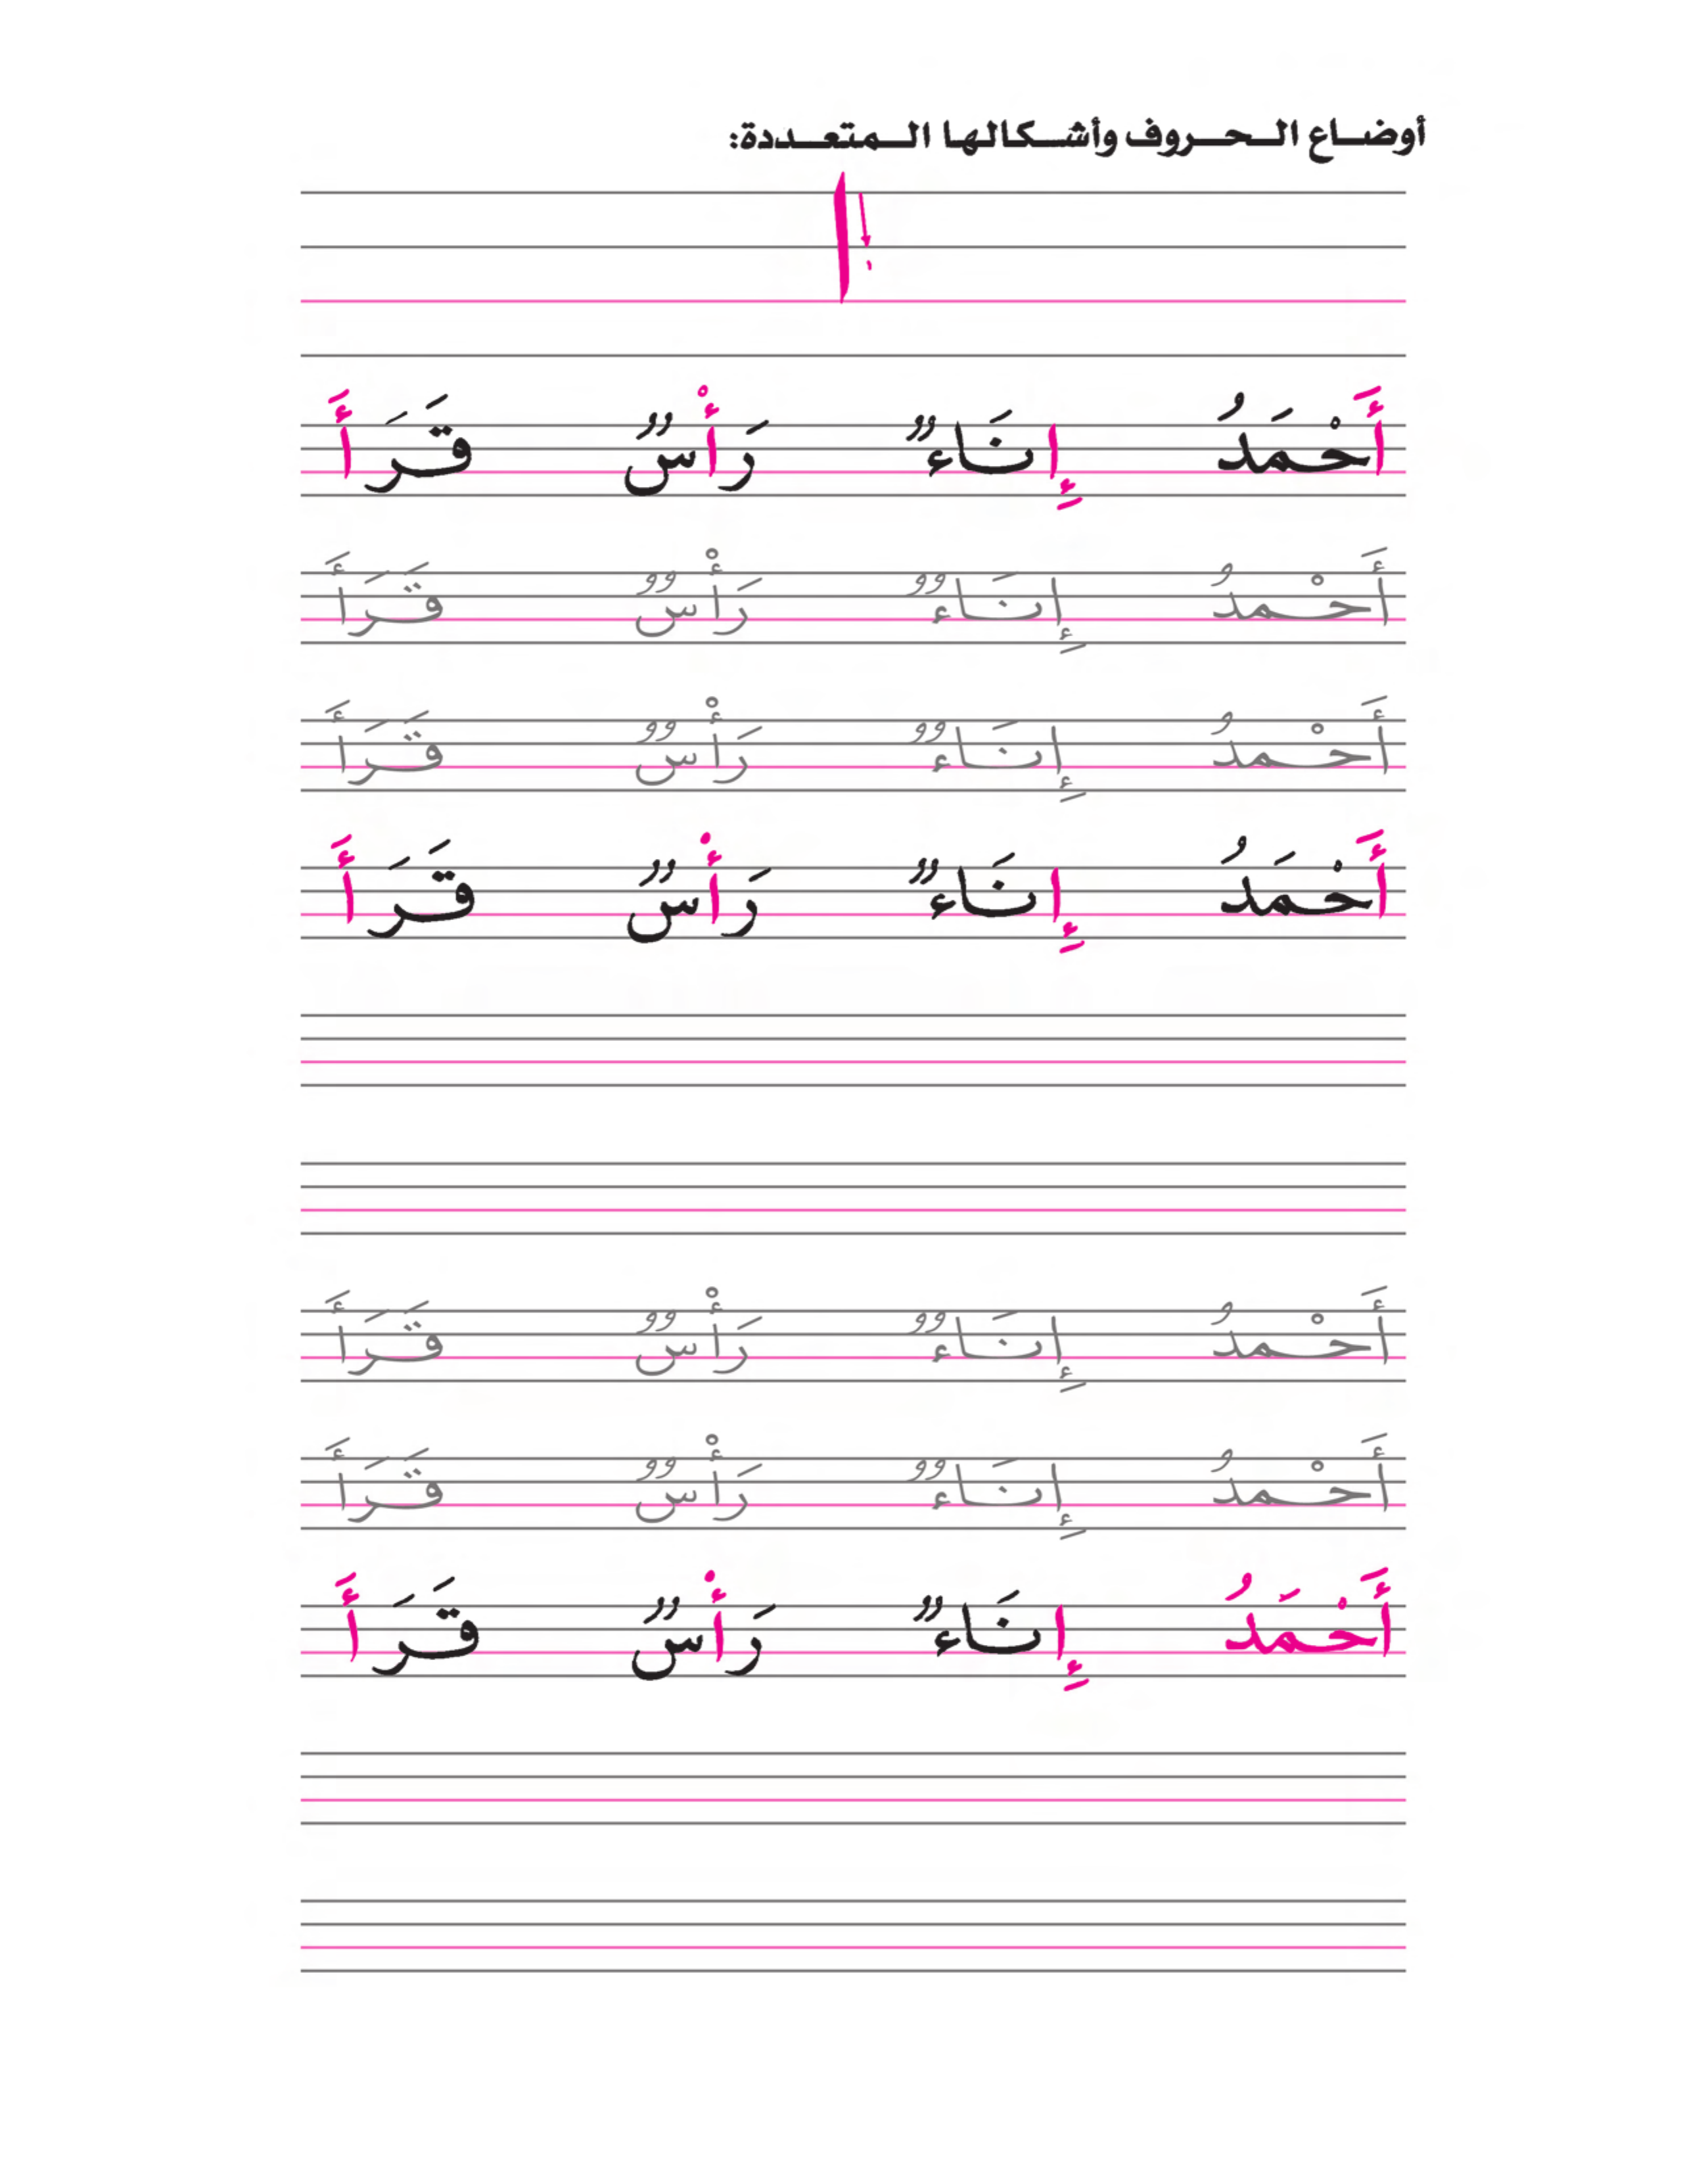 أوضاع الحروف وأشكالها المتعددة:
ا
أَحْمَدُ إِنَاءٌ رَأْسٌ قَرَأَ
أَحْمَدُ إِنَاءٌ رَأْسٌ قَرَأَ
أَحْمَدُ إِنَاءٌ رَأْسٌ قَرَأَ
أَحْمَدُ إِنَاءٌ رَأْسٌ قَرَأَ
أَحْمَدُ إِنَاءٌ رَأْسٌ قَرَأَ
أَحْمَدُ إِنَاءٌ رَأْسٌ قَرَأَ
أَحْمَدُ إِنَاءٌ رَأْسٌ قَرَأَ